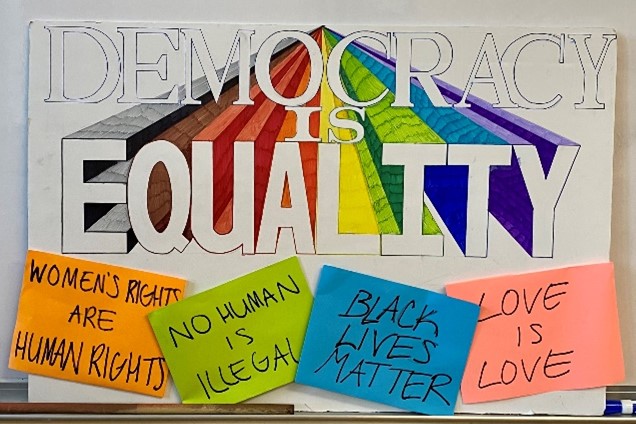 DEMOCRACY
IS
EQUALITY
WOMEN'S RIGHTS
ARE
HUMAN RIGHTS
NO HUMAN
IS
ILLEGAL
BLACK
LIVES
MATTER
LOVE
IS
LOVE